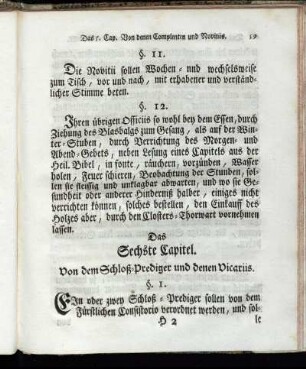 Das 5. Cap. Von denen Complenten und Novitiis. 59
§. 11.
Die Novitii sollen Wochen- und wechselsweise
zum Tisch, vor und nach, mit erhabener und verständ-
licher Stimme beten.
§. 12.
Ihren übrigen Officiis so wohl bey dem Essen, durch
Ziehung des Blasbalgs zum Gesang, als auf der Win-
ter-Stuben, durch Verrichtung des Morgen- und
Abend-Gebets, neben Lesung eines Capitels aus der
Heil. Bibel, in fonte, räuchern, vorzünden, Wasser
holen, Feuer schieren, Beobachtung der Stunden, sol-
len sie fleissig und unklagbar abwarten, und wo sie Ge-
sundheit oder anderer Hinderniß halber, einiges nicht
verrichten können, solches bestellen, den Einkauff des
Holzes aber, durch den Closters-Thorwart vornehmen
lassen.
Das
Sechste Capitel.
Von dem Schloß-Prediger und denen Vicariis.
§. 1.
Ein oder zwey Schloß-Prediger sollen von dem
Fürstlichen Consistorio verordnet werden, und sol-
H 2 le